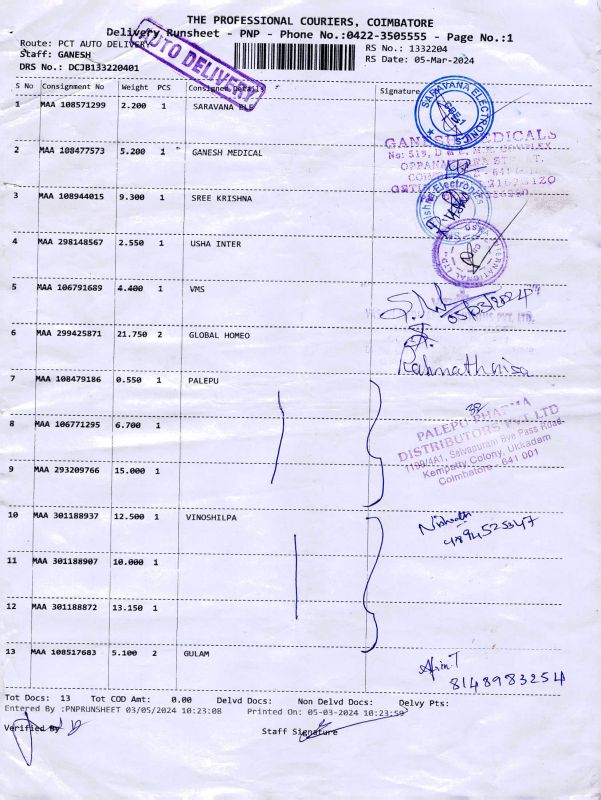 THE PROFESSIONAL COURIERS, COIMBATORE
Delivery Runsheet - PNP - Phone No.:0422-3505555 - Page No.:1
Route: PCT AUTO DELIVERY
RS No.: 1332204
Staff: GANESH
RS Date: 05-Mar-2024
DRS No.: DCJB133220401
AUTO DELIVERY
S No Consignment No Weight PCS Consignee Details Signature
1 MAA 108571299 2.200 1 SARAVANA ELE
SARAVANA ELECTRONICS
2 MAA 108477573 5.200 1 GANESH MEDICAL
GANESH MEDICALS
3 MAA 108944015 9.300 1 SREE KRISHNA
Electronics
4 MAA 298148567 2.550 1 USHA INTER
USHA INTERNATIONAL LTD
5 MAA 106791689 4.400 1 VMS
05/03/2024
6 MAA 299425871 21.750 2 GLOBAL HOMEO
Rahmathnisa
7 MAA 108479186 0.550 1 PALEPU
8 MAA 106771295 6.700 1
PALEPU PHARMA
DISTRIBUTORS PVT LTD
1199/4A1, Selvapuram Bye Pass Road
Kempatty Colony, Ukkadam
Coimbatore - 641 001
9 MAA 293209766 15.000 1
10 MAA 301188937 12.500 1 VINOSHILPA
11 MAA 301188907 10.000 1
12 MAA 301188872 13.150 1
13 MAA 108517683 5.100 2 GULAM
Afrin.T
8148983254
Tot Docs: 13 Tot COD Amt: 0.00 Delvd Docs: Non Delvd Docs: Delvy Pts:
Entered By :PNPRUNSHEET 03/05/2024 10:23:08 Printed On: 05-03-2024 10:23:59
Verified By
Staff Signature